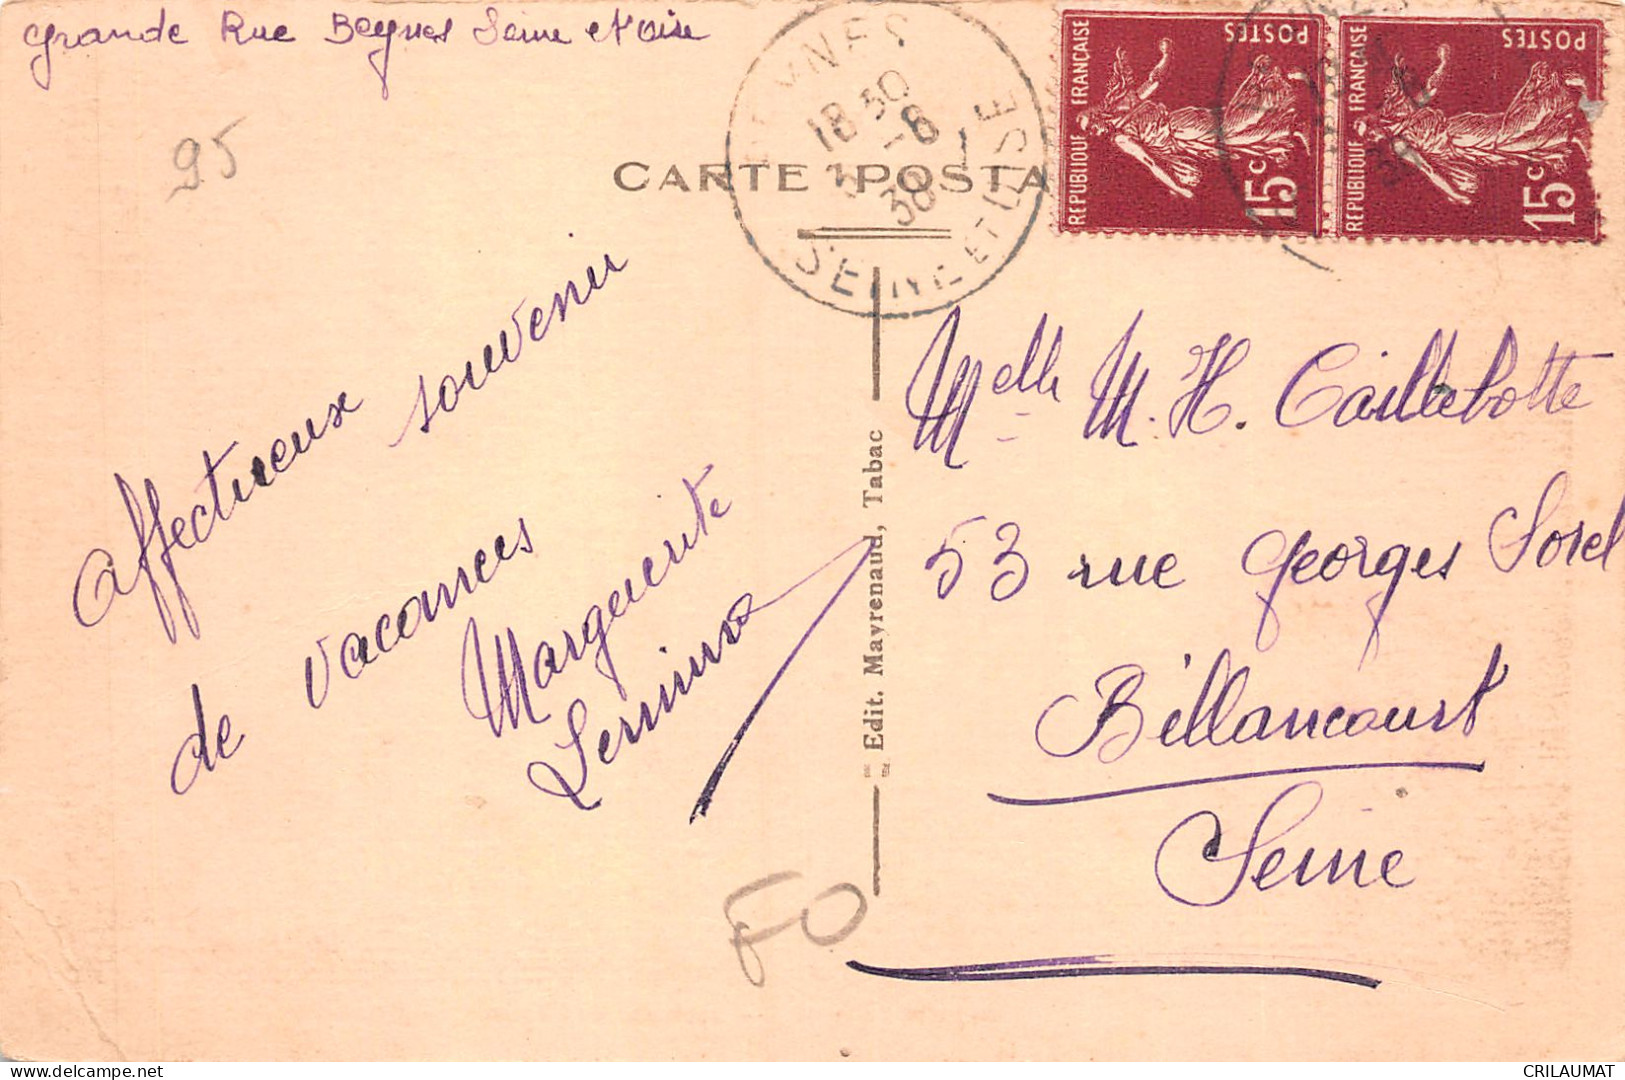 Grande Rue Beynes Seine et Oise
95
BEYNES
18 30
3 -8
38
SEINE ET OISE
CARTE POSTA
POSTES
REPUBLIQUE FRANÇAISE
15c
POSTES
REPUBLIQUE FRANÇAISE
15c
Affectueux souvenir
de vacances
Marguerite
Edit. Mayrenaud, Tabac
Melle M. H. Caillebotte
53 rue Georges Sorel
Billancourt
Seine
FO
CRILAUMAT